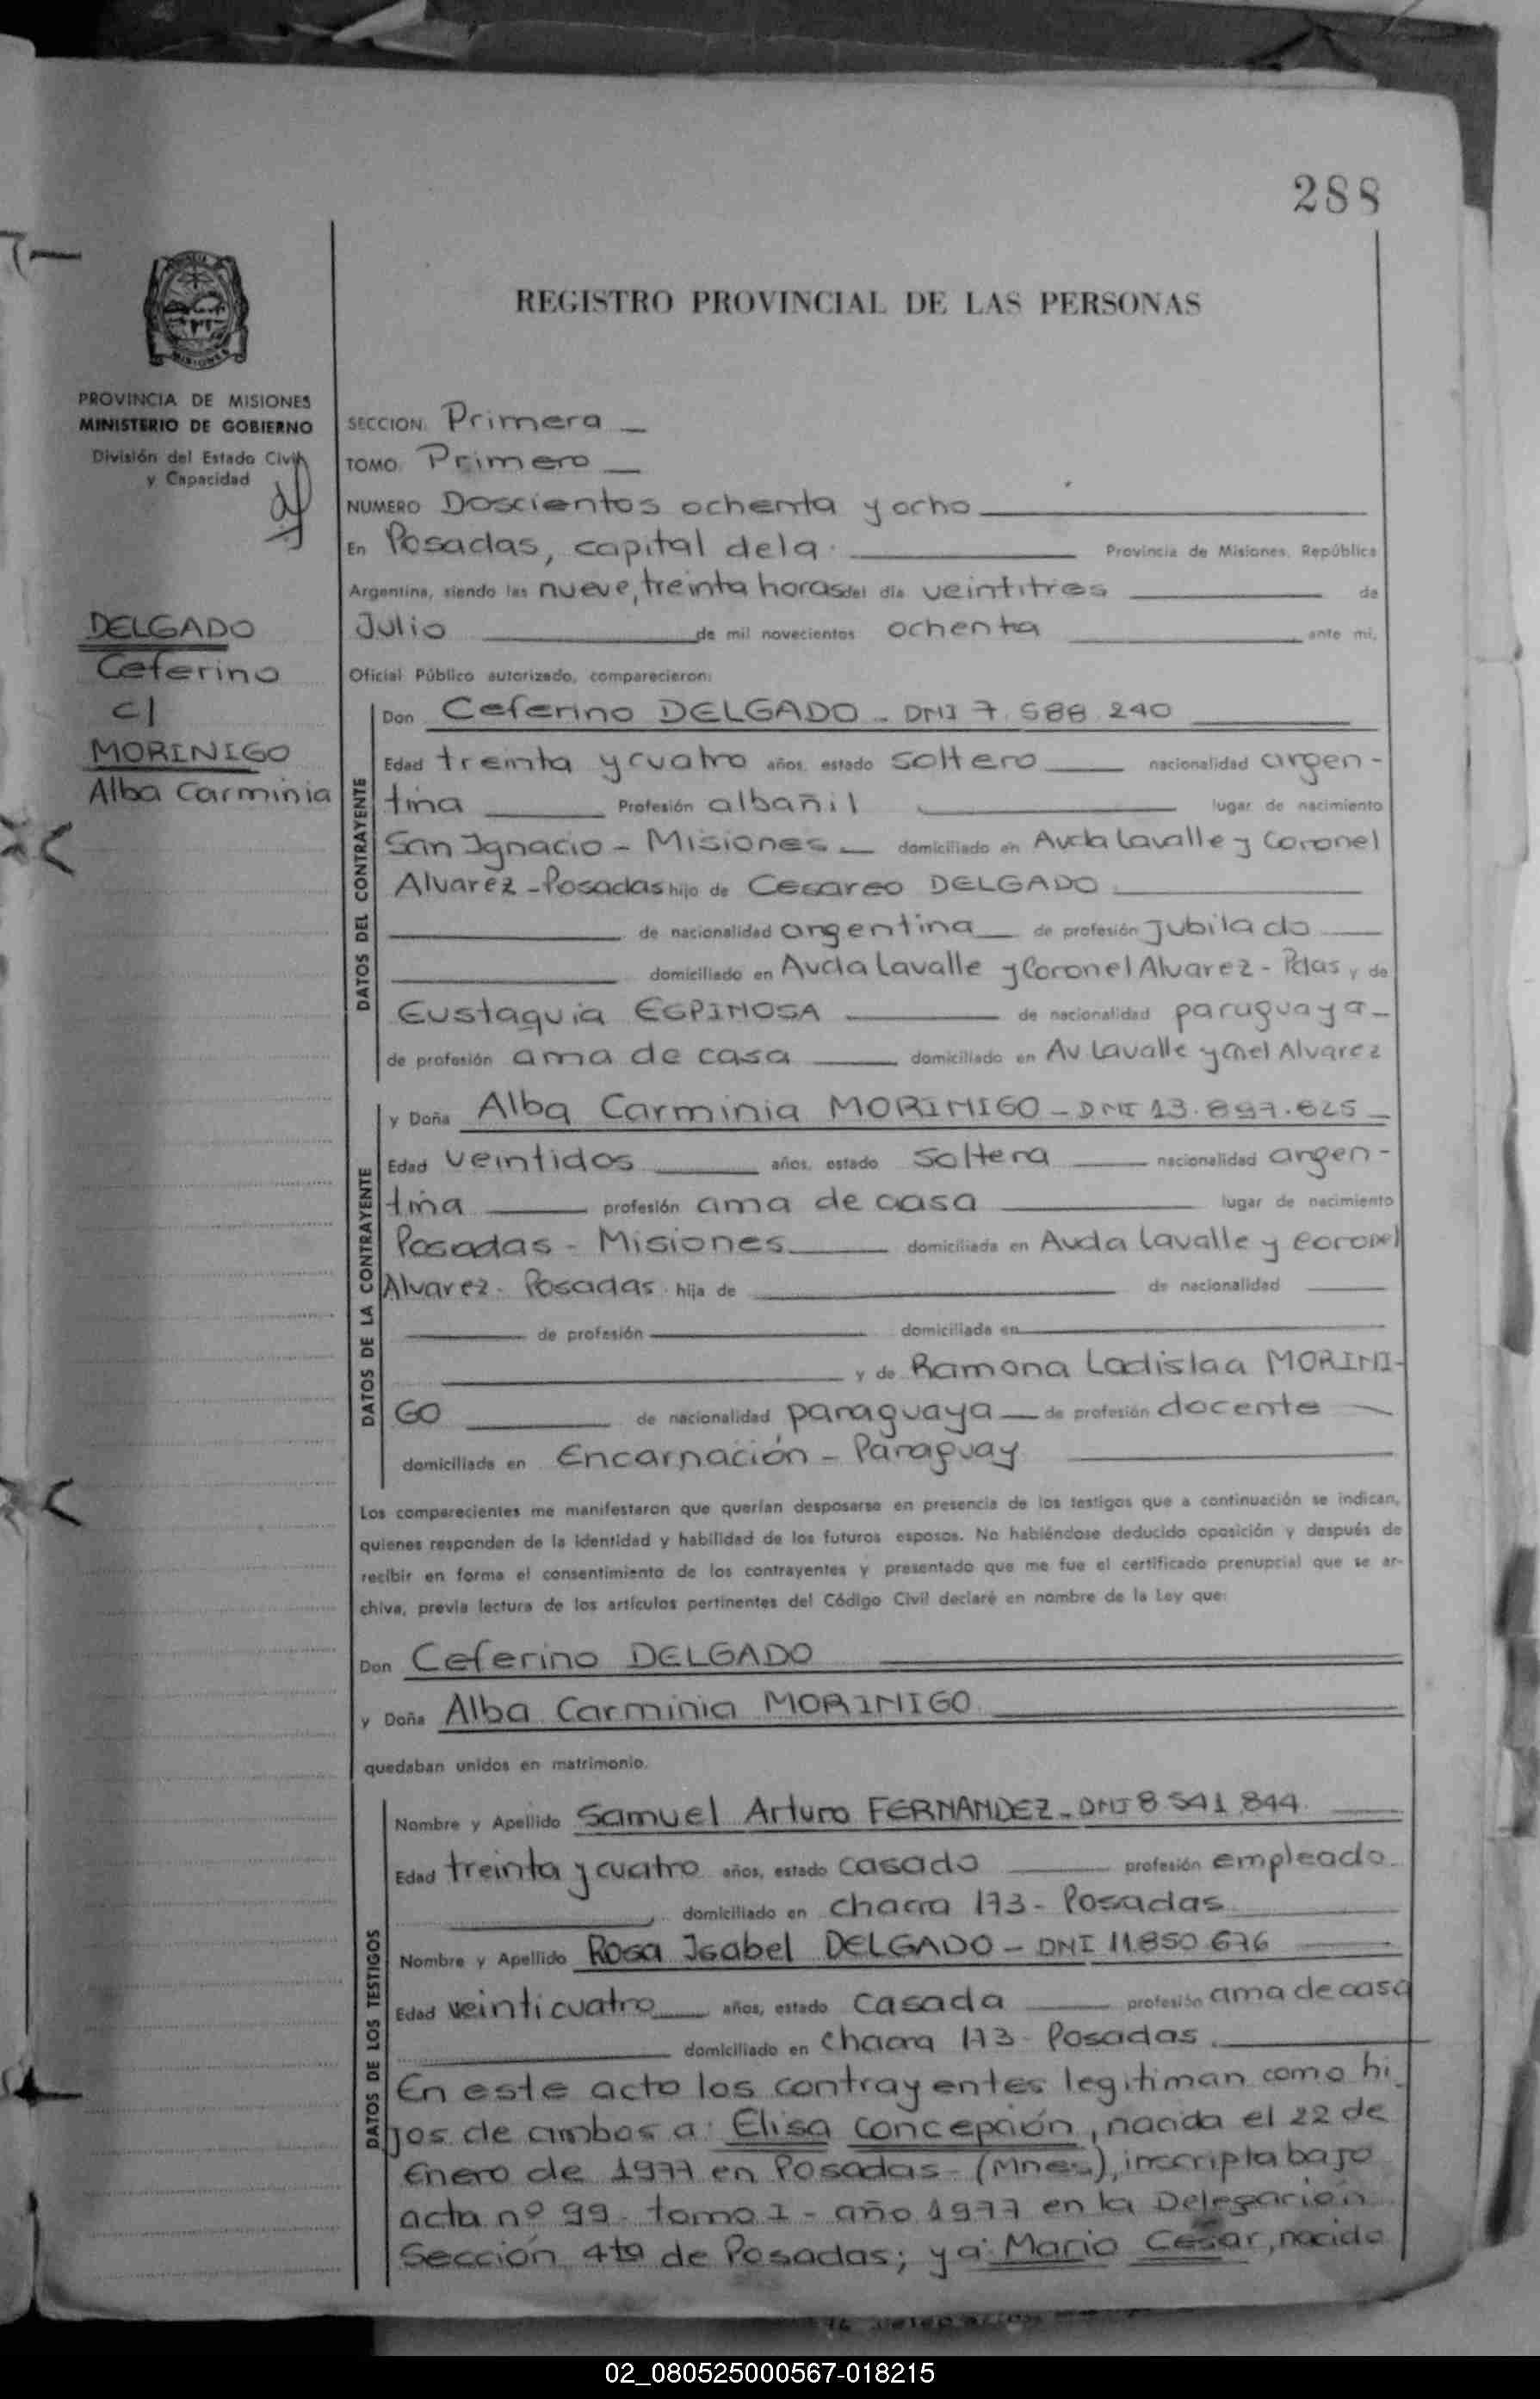 288
REGISTRO PROVINCIAL DE LAS PERSONAS
MISIONES
PROVINCIA DE MISIONES
MINISTERIO DE GOBIERNO
División del Estado Civil
y Capacidad
DELGADO
Ceferino
c/
MORINIGO
Alba Carminia
SECCION: Primera
TOMO: Primero
NUMERO Doscientos ochenta y ocho
En Posadas, capital de la Provincia de Misiones, República
Argentina, siendo las nueve, treinta horas del día veintitres de
Julio de mil novecientos ochenta ante mi,
Oficial Público autorizado, comparecieron:
DATOS DEL CONTRAYENTE
Don Ceferino DELGADO - DNI 7.588.240
Edad treinta y cuatro años, estado soltero nacionalidad argen-
tina Profesión albañil lugar de nacimiento
San Ignacio - Misiones domiciliado en Avda Lavalle y Coronel
Alvarez - Posadas hijo de Cesareo DELGADO
de nacionalidad argentina de profesión Jubilado
domiciliado en Avda Lavalle y Coronel Alvarez - Pdas y de
Eustaquia ESPINOSA de nacionalidad paraguaya
de profesión ama de casa domiciliado en Av Lavalle y Cnel Alvarez
DATOS DE LA CONTRAYENTE
y Doña Alba Carminia MORINIGO - DNI 13.897.625
Edad veintidos años, estado soltera nacionalidad argen-
tina profesión ama de casa lugar de nacimiento
Posadas - Misiones domiciliada en Avda Lavalle y coronel
Alvarez - Posadas hija de de nacionalidad
de profesión domiciliada en
y de Ramona Ladislaa MORINI-
GO de nacionalidad paraguaya de profesión docente
domiciliada en Encarnación - Paraguay
Los comparecientes me manifestaron que querían desposarse en presencia de los testigos que a continuación se indican,
quienes responden de la identidad y habilidad de los futuros esposos. No habiéndose deducido oposición y después de
recibir en forma el consentimiento de los contrayentes y presentado que me fue el certificado prenupcial que se ar-
chiva, previa lectura de los artículos pertinentes del Código Civil declaré en nombre de la Ley que:
Don Ceferino DELGADO
y Doña Alba Carminia MORINIGO
quedaban unidos en matrimonio.
DATOS DE LOS TESTIGOS
Nombre y Apellido Samuel Arturo FERNANDEZ - DNI 8.541.844
Edad treinta y cuatro años, estado casado profesión empleado
domiciliado en chacra 173 - Posadas
Nombre y Apellido Rosa Isabel DELGADO - DNI 11.850.676
Edad veinticuatro años, estado casada profesión ama de casa
domiciliado en chacra 173 - Posadas
En este acto los contrayentes legitiman como hi-
jos de ambos a: Elisa Concepción, nacida el 22 de
Enero de 1977 en Posadas - (Mnes), inscripta bajo
acta nº 99 - tomo I - año 1977 en la Delegación
Sección 4ta de Posadas; y a: Mario Cesar, nacido
02_080525000567-018215